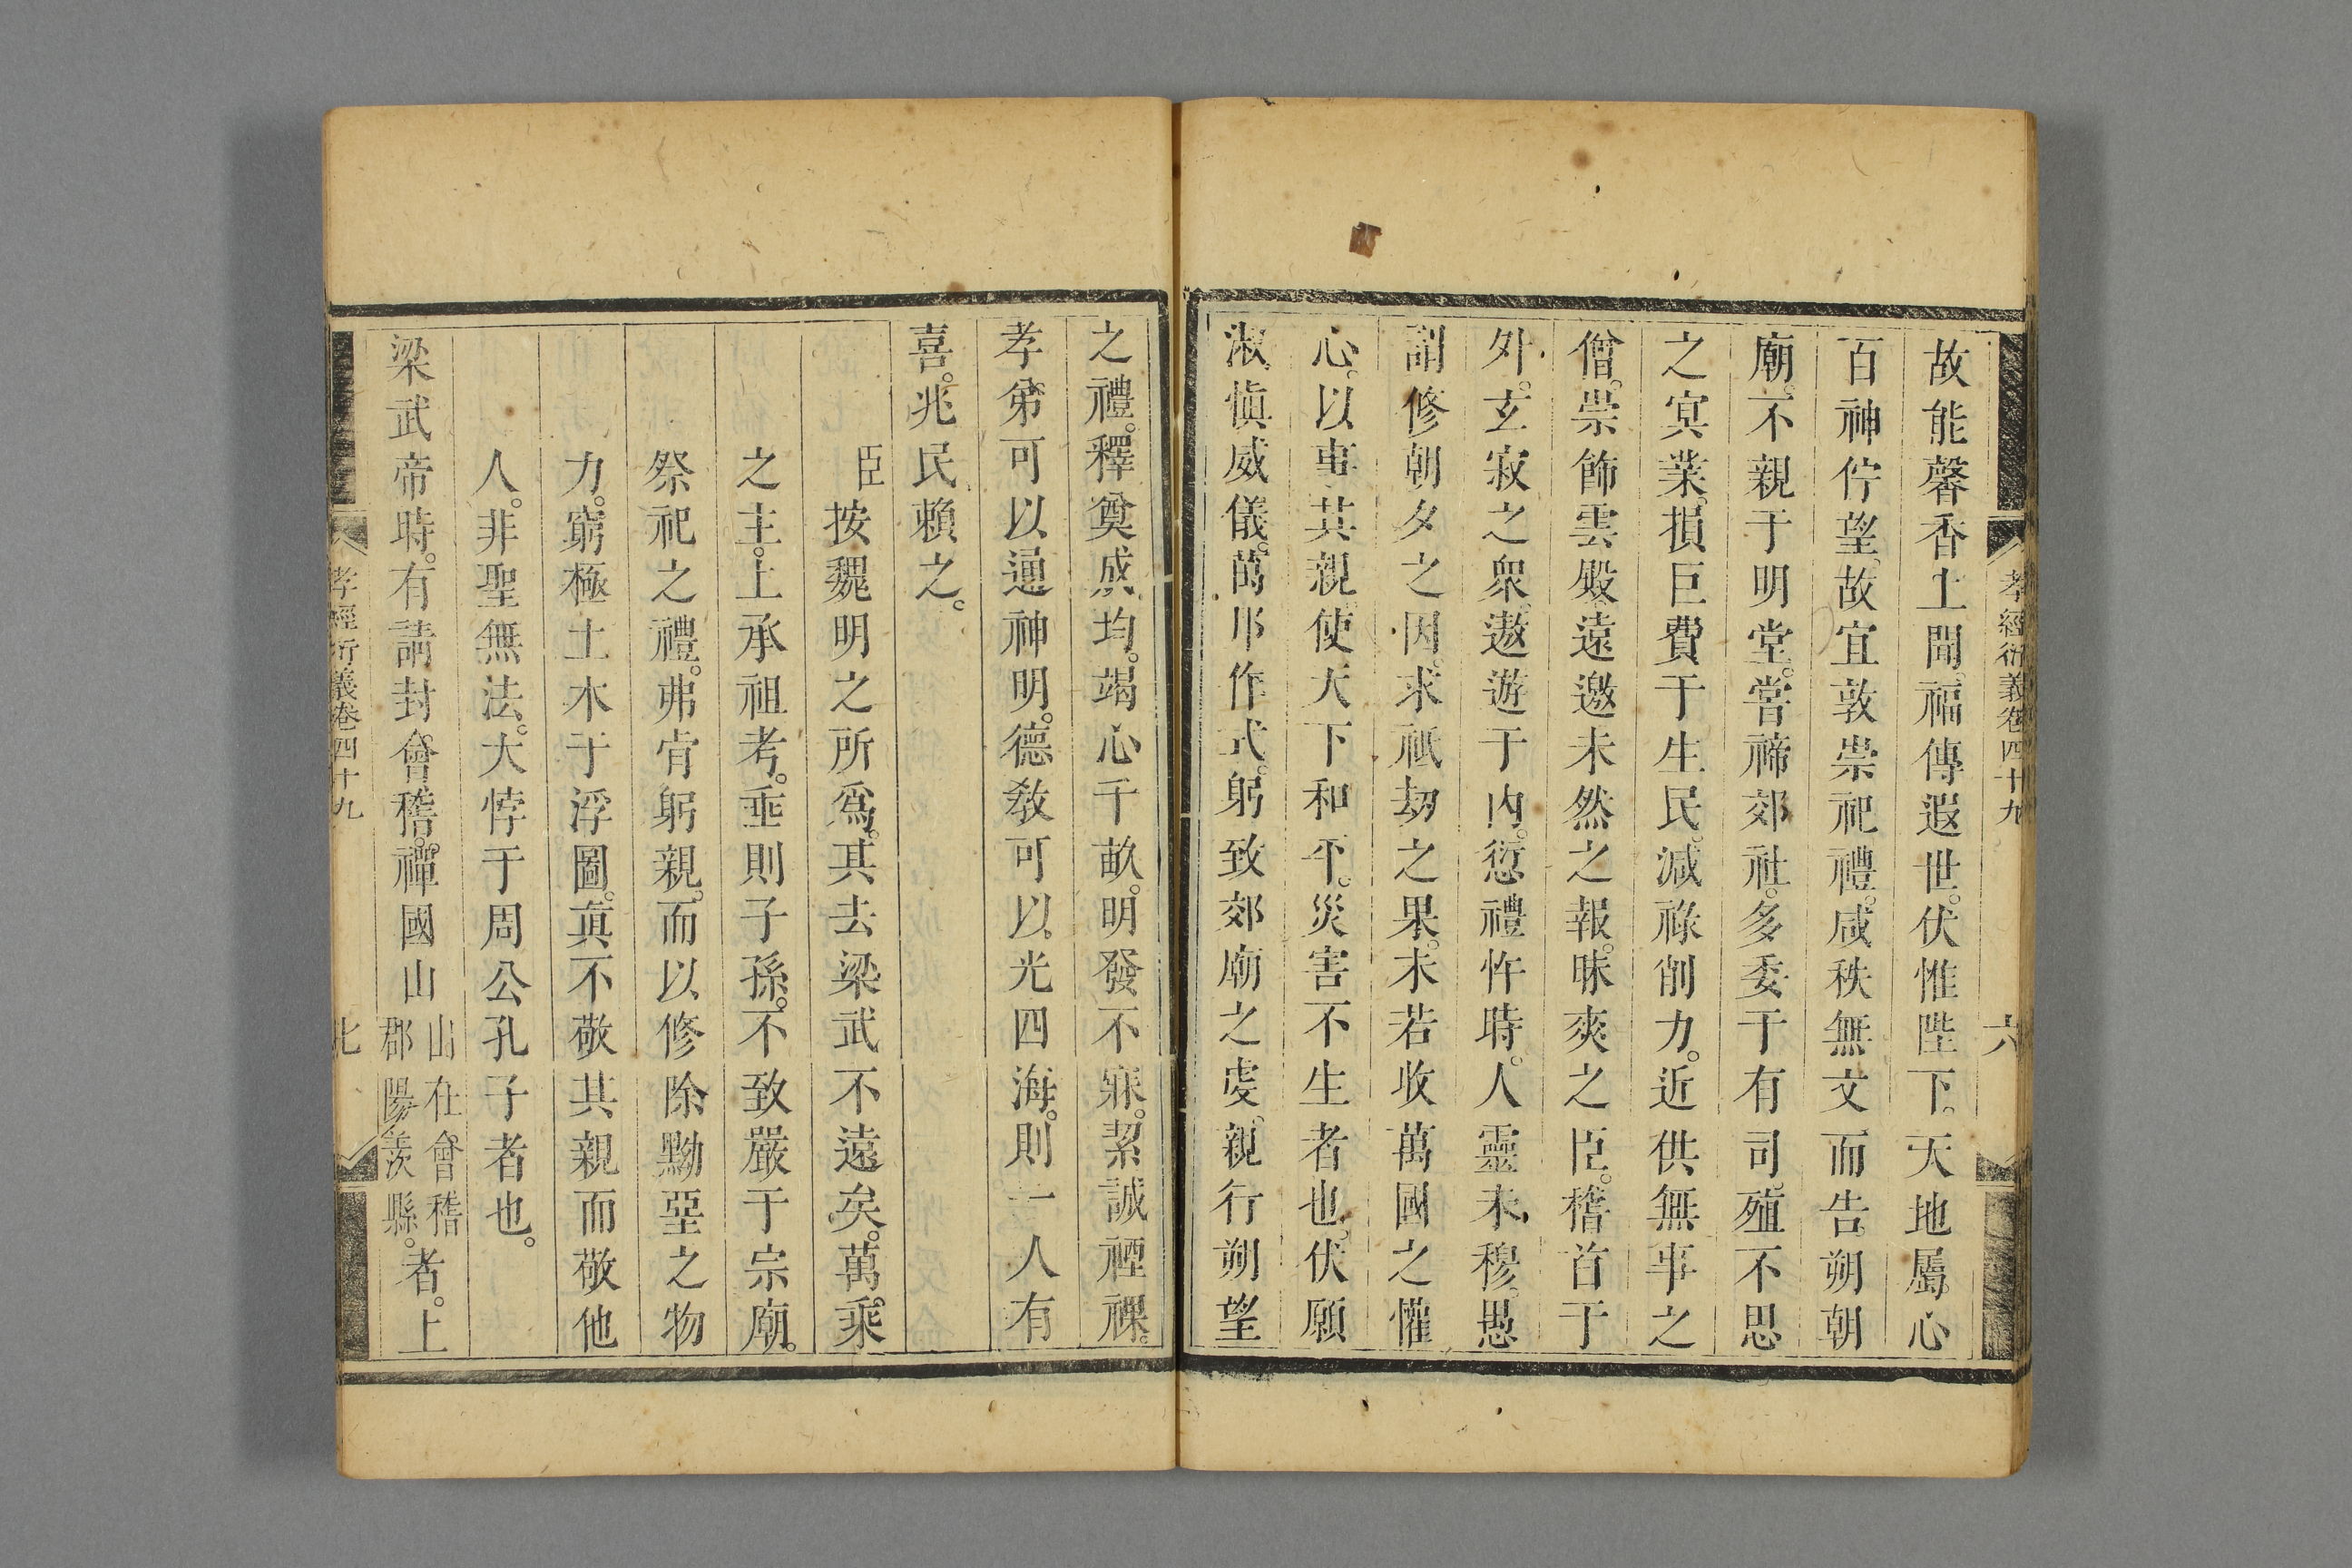 孝經衍義卷四十九
六
故能馨香上聞福傳遐世。伏惟陛下。天地屬心
百神佇望。故宜敦崇祀禮。咸秩無文而告朔朝
廟。不親于明堂。嘗禘郊社。多委于有司。殖不思
之冥業。損巨費于生民。減祿削力。近供無事之
僧。崇飾雲殿。遠邀未然之報。昧爽之臣。稽首于
外。玄寂之衆。遨遊于內。愆禮忤時。人靈未穆。愚
謂修朝夕之因。求祇劫之果。未若收萬國之懽
心。以事其親。使天下和平。災害不生者也。伏願
淑慎威儀。萬邦作式。躬致郊廟之虔。親行朔望
之禮。釋奠成均。竭心千畝。明發不寐。絜誠禋祼。
孝弟可以通神明。德教可以光四海。則一人有
喜。兆民賴之。
臣按魏明之所爲。其去梁武不遠矣。萬乘
之主。上承祖考。垂則子孫。不致嚴于宗廟。
祭祀之禮。弗肯躬親。而以修除黝堊之物
力。窮極土木于浮圖。眞不敬其親而敬他
人。非聖無法。大悖于周公孔子者也。
梁武帝時。有請封會稽。禪國山山在會稽郡陽羨縣。者。上
孝經衍義卷四十九